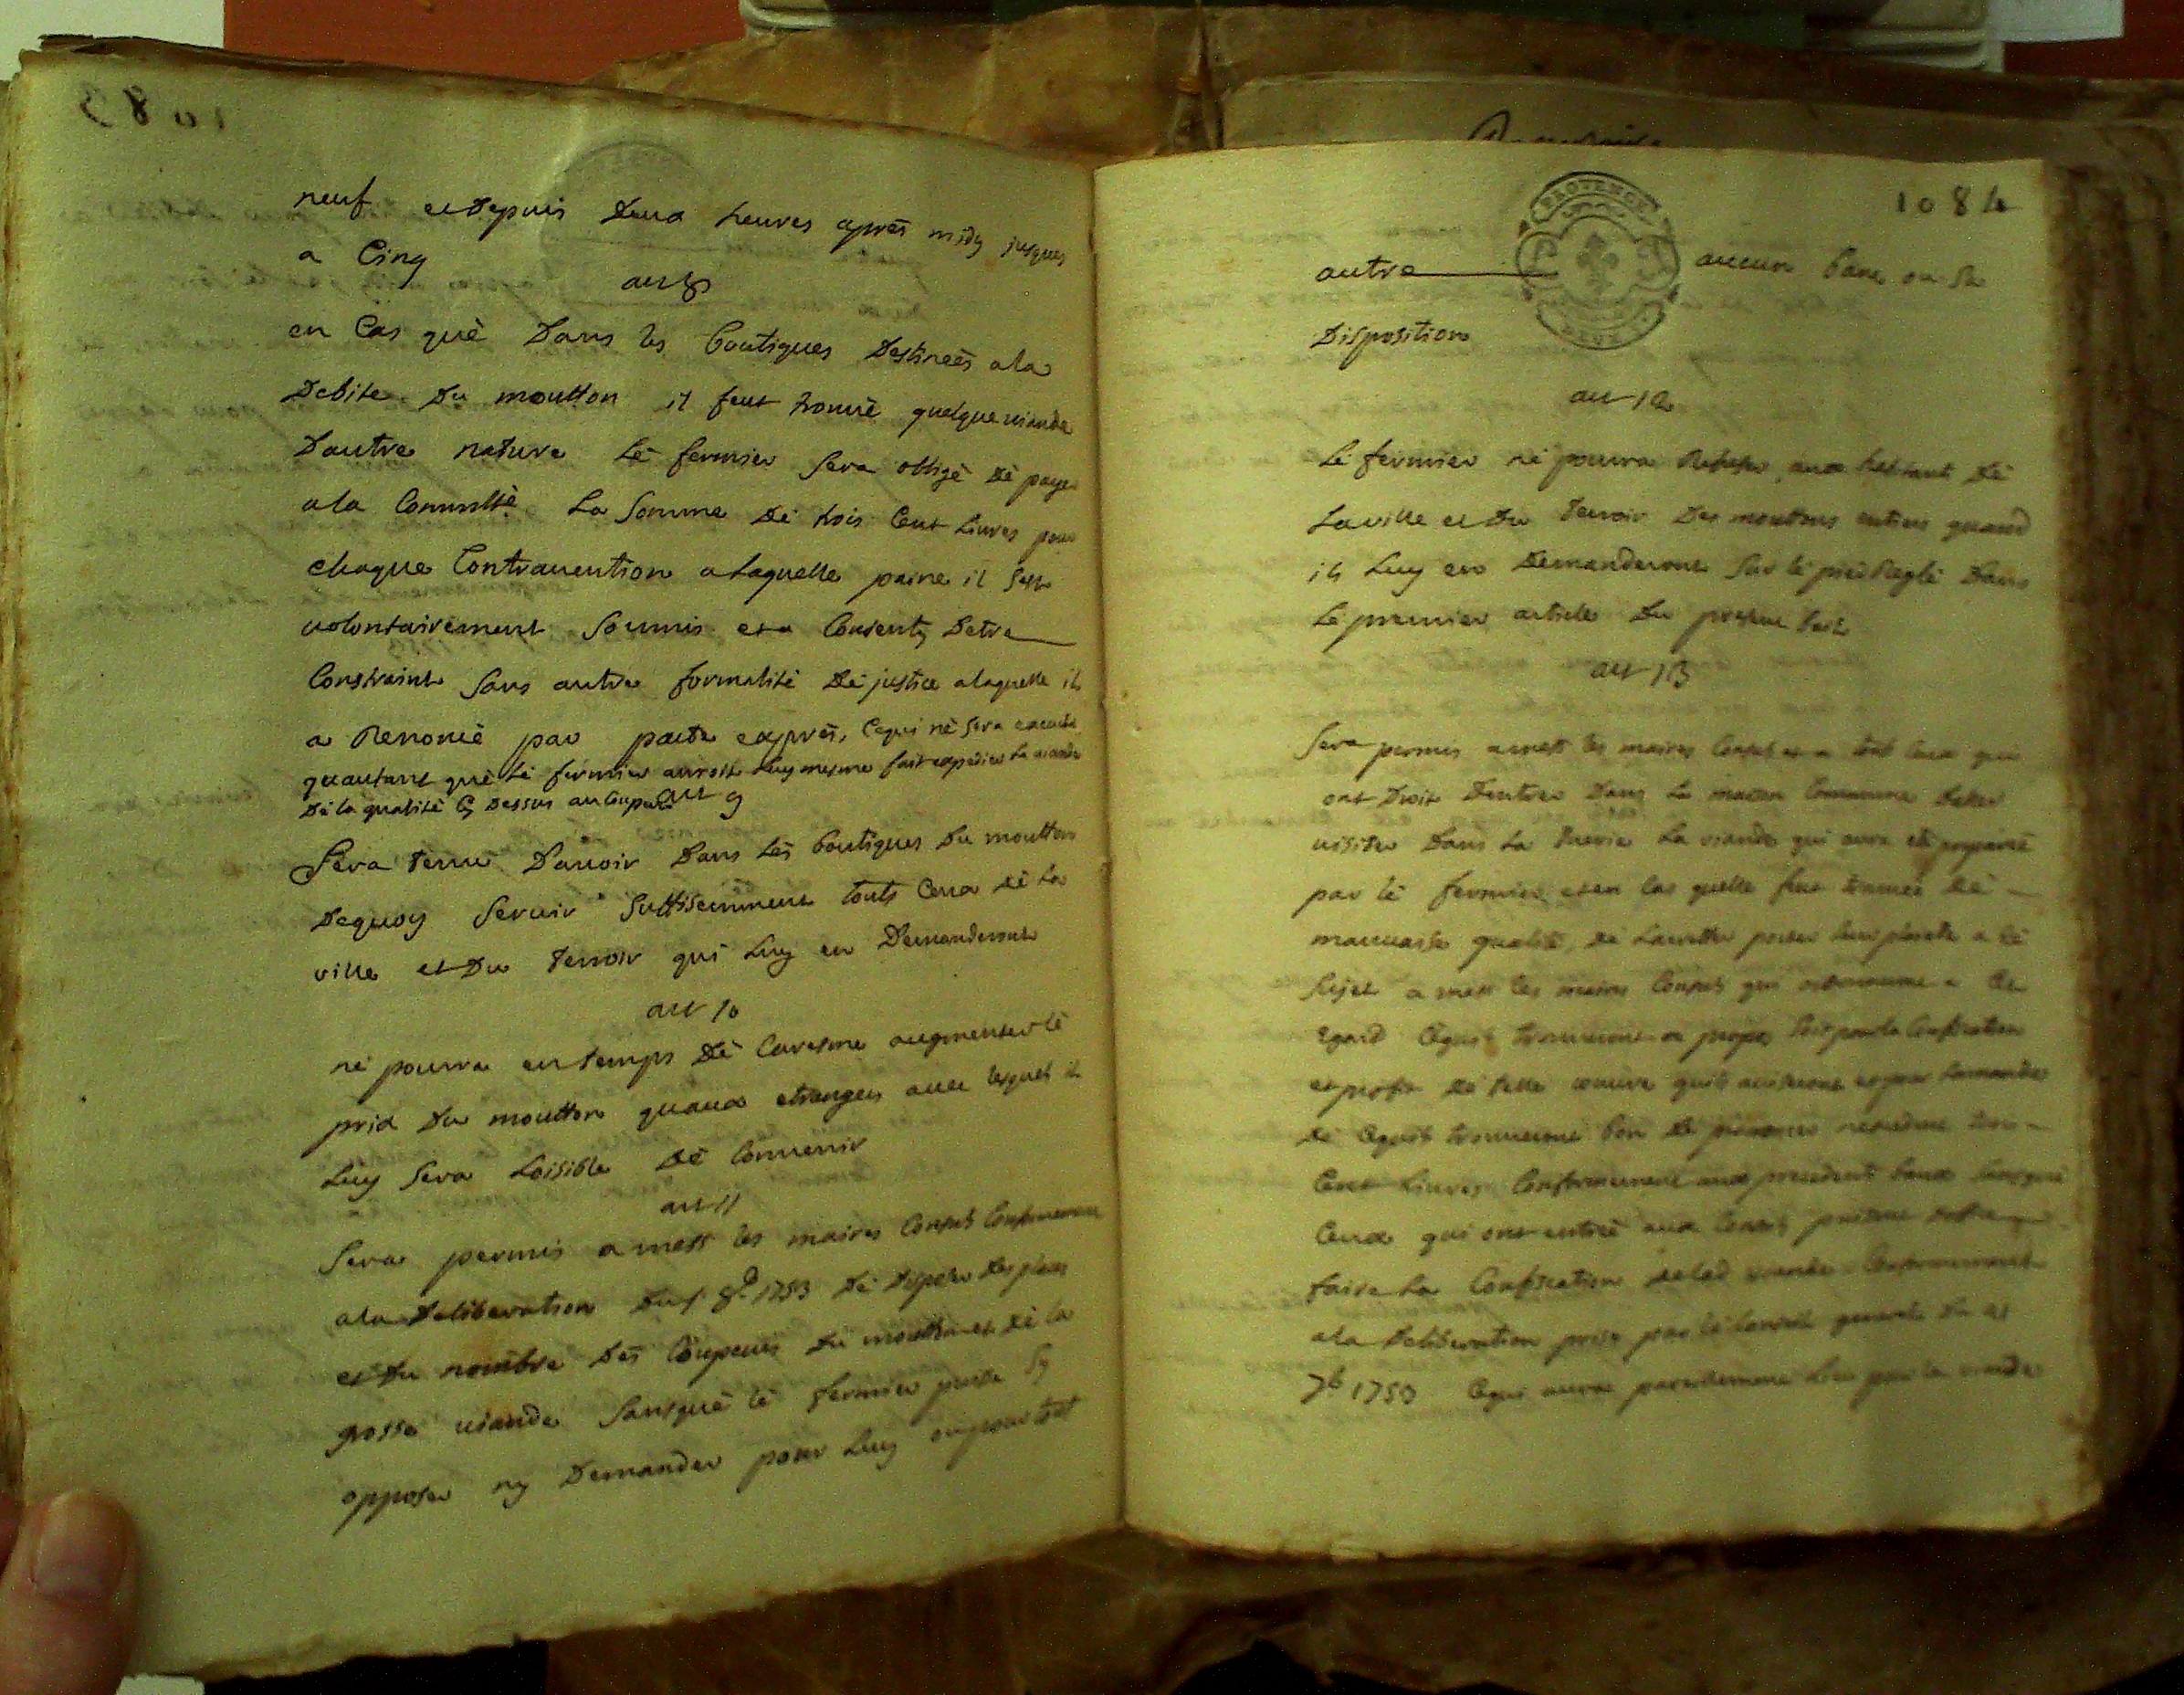 neuf et depuis deux heures aprés midy jusques
a Cinq
art 8
en Cas qué dans les boutiques destineés a la
debite du moutton il feut trouvé quelque viande
dautre nature Lé fermier Sera obligé dé payer
a la Commté La Somme dé trois Cent Livres pour
chaque Contravention a Laquelle paine il Sest
volontairement Soumis et a Consenty detre
Constraint Sans autre formalité dé justice a laquelle il
a Renoncé par pacte exprés, Cequi né Sera executé
quautant qué Lé fermier auroit Luy mesme fait expedier La viande
dé la qualité Cy dessus au Coupeur
art 9
Sera tenu davoir dans Lés boutiques du moutton
dequoy Servir Suffisemment touts Ceux dé La
ville et du terroir qui Luy en demanderont
art 10
né pourra en temps dé Caresme augmenter lé
prix du moutton quaux etrangers avec lesquels il
Luy Sera Loisible dé Convenir
art 11
Sera permis a mess les maires Consuls Conformement
a la deliberation du 1 8e 1753 dé disposer des places
et du nombre dés Coupeurs du moutton et dé la
grosse viande Sans qué lé fermier puisse Sy
opposer ny demander pour Luy ou pour tout
1084
PROVENCE
autre aucun banc ou Sa
disposition
art 12
Lé fermier né pourra Refuser aux habitants dé
La ville et du terroir des mouttons entiers quand
ils Luy en demanderont Sur lé pied Reglé dans
Lé premier article du present bail
art 13
Sera permis a mess les maires Consuls et a tout Ceux qui
ont droit dentrer dans La maison Commune
visiter dans La tuerie La viande qui aura eté preparée
par lé fermier et en Cas quelle feut trouvée dé
mauvaise qualité, dé porter Leur plainte a Cé
Sujet a mess les maires Consuls qui ordonneront a Cet
egard Cequils trouveront a propos Soit pour la Confiscation
et profit dé telle œuvre quils aviseront et pour Lamande
dé Cequils trouveront bon
Cent Livres Conformement aux precedents baux Sans qué
Ceux qui ont entrée aux Conseils puissent
faire La Confiscation de lad viande Conformement
a la deliberation prise par lé Conseil general du 21
7b 1753 Cequi aura pareillement Lieu pour la viande